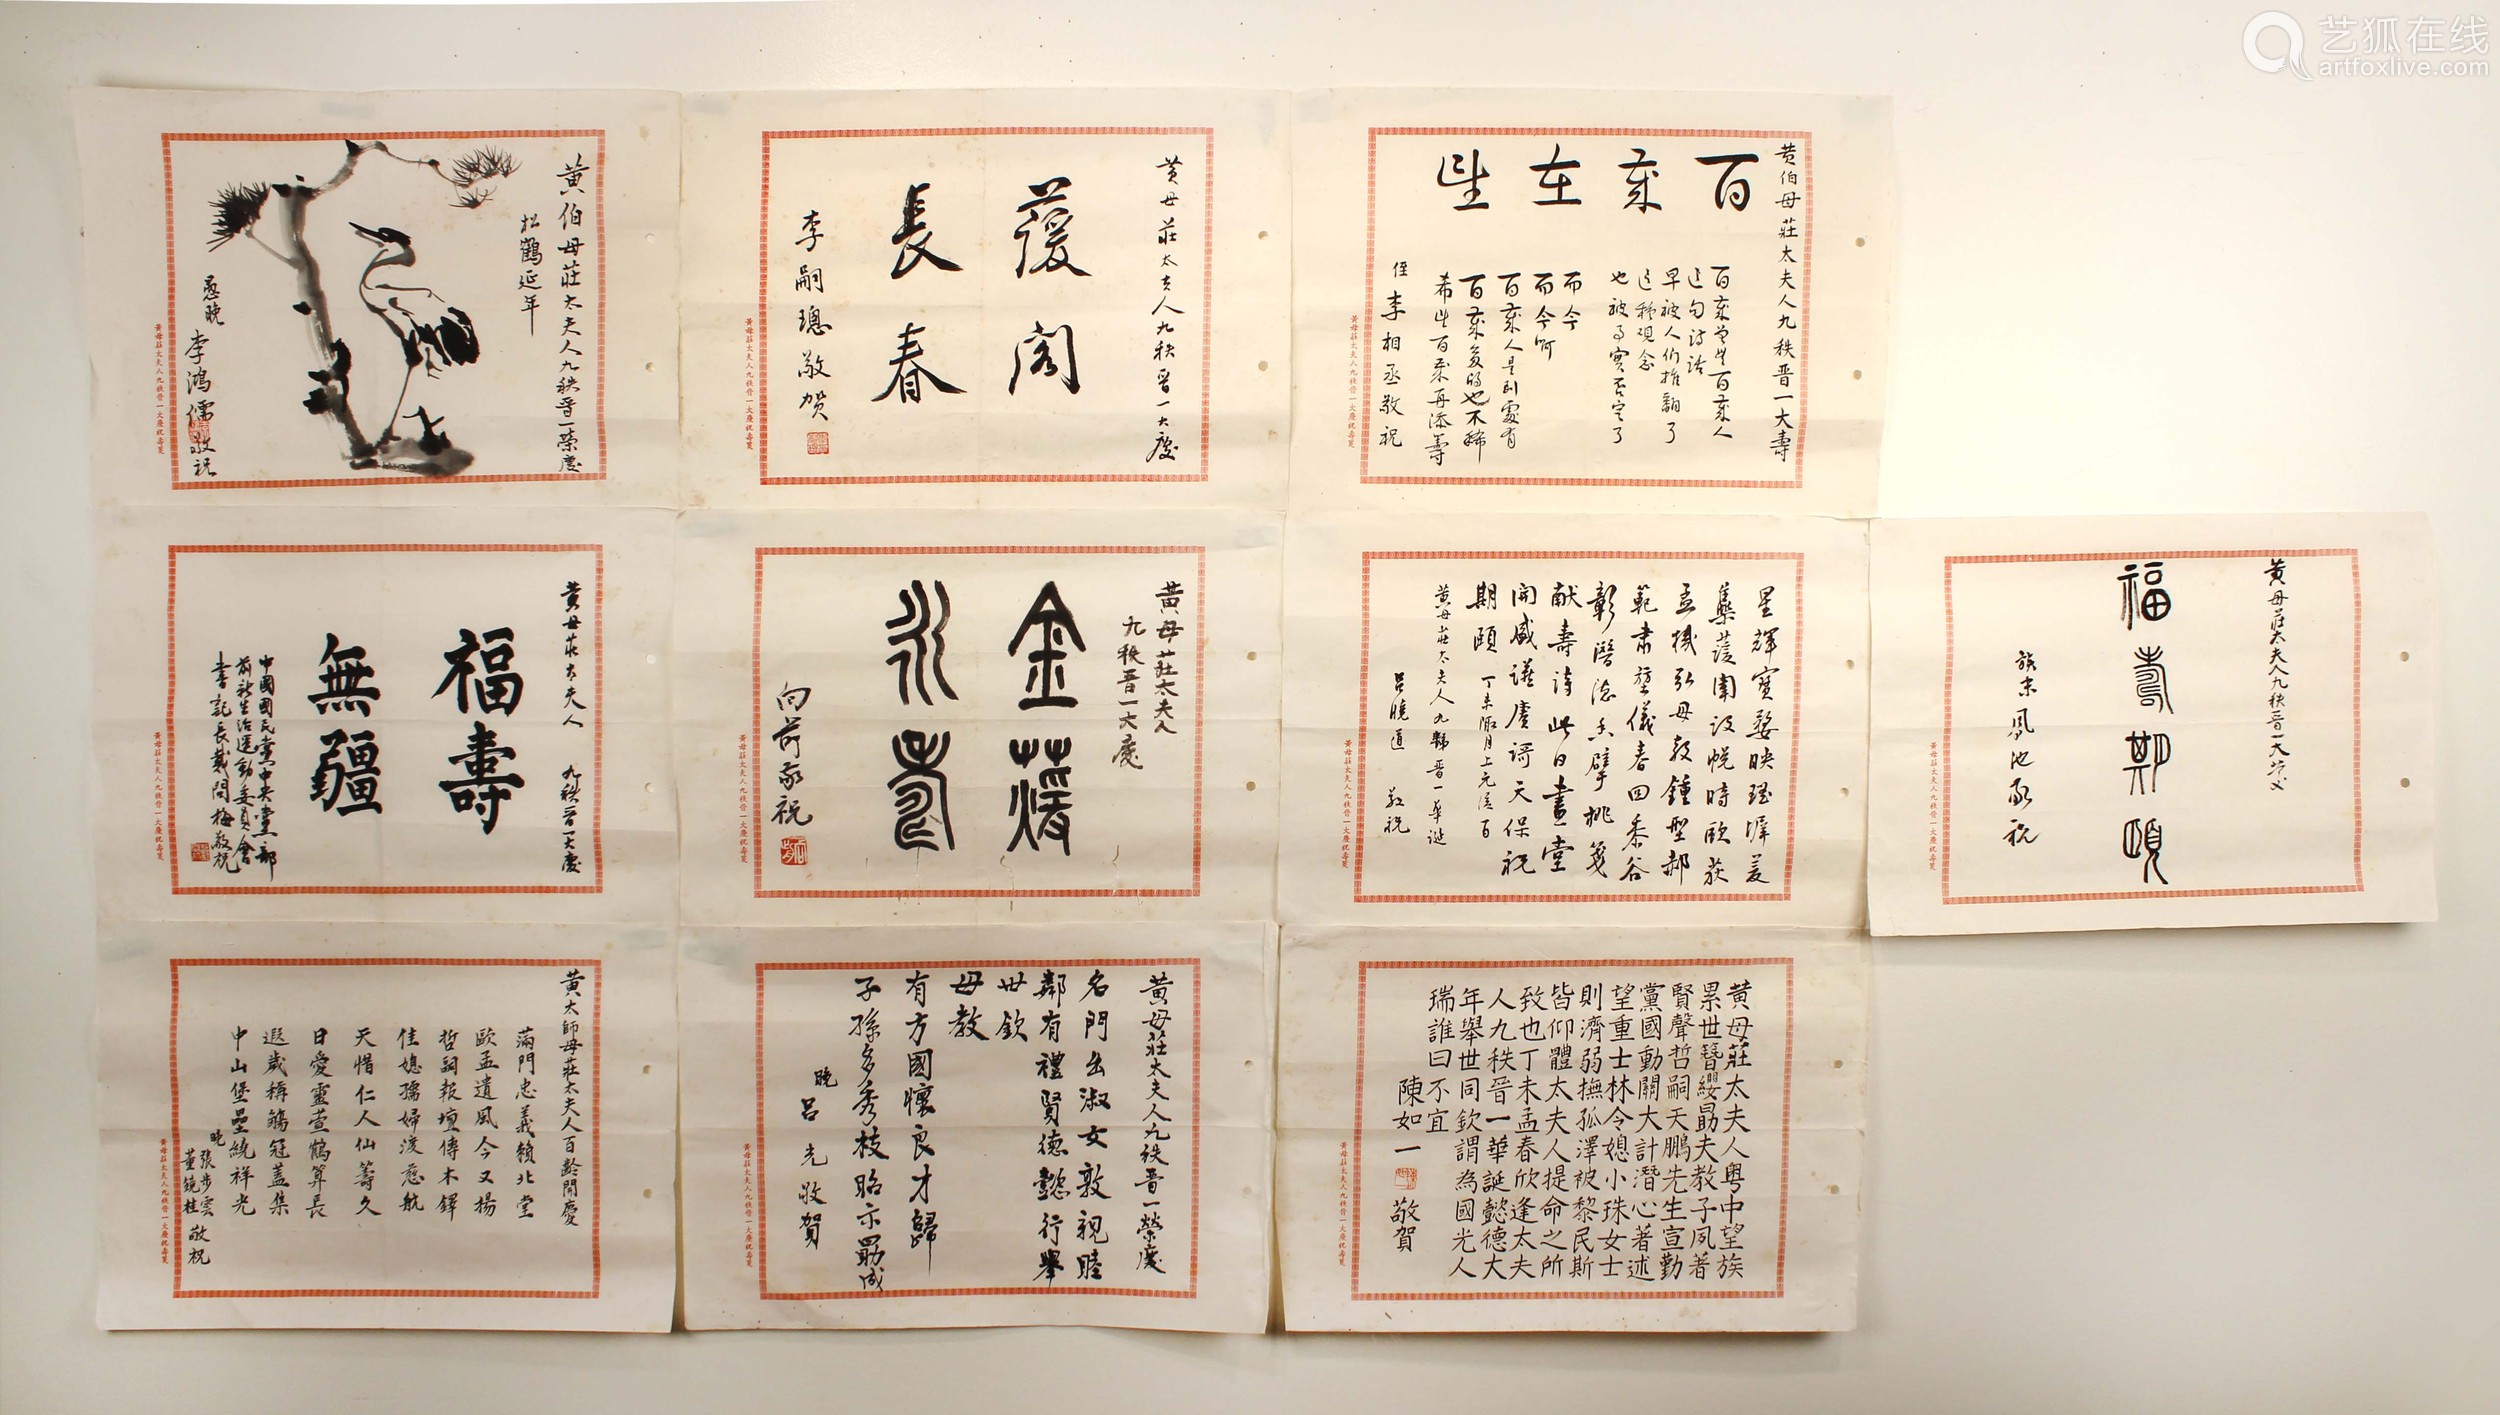 艺狐在线
artfoxlive.com
黄伯母莊太夫人九秩晋一荣慶
松鶴延年
愚晚 李鴻儒 敬祝
黄母莊太夫人九秩晉一大慶祝壽箋
黄母莊太夫人九秩晋一大慶
萲閣
長春
李嗣璁敬贺
黄母莊太夫人九秩晉一大慶祝壽箋
黄伯母莊太夫人九秩晋一大壽
百歲在望
百歲曾無百歲人
这句詩話
早被人们推翻了
这種观念
也被事實否定了
而今
而今啊
百歲人是到處有
百歲多的也不稀
希望百歲再添壽
侄 李相丞敬祝
黄母莊太夫人九秩晉一大慶祝壽箋
黄母莊太夫人 九秩晋一大慶
福壽
無疆
中國國民黨中央黨部
前新生活運動委員會
書記長戴問梅敬祝
黄母莊太夫人九秩晉一大慶祝壽箋
黄母莊太夫人
九秩晋一大慶
金萲
永壽
向前敬祝
黄母莊太夫人九秩晉一大慶祝壽箋
星輝寶婺映瑶墀萲
集萲闈設帨時歐荻
孟機弘母教鍾型郝
範肅壼儀春回黍谷
彰潛德 擘桃箋
献壽詩此日畫堂
開盛讌賡謌天保祝
期頤 丁未 月上元後百
黄母莊太夫人九秩晋一華誕
吕曉道 敬祝
黄母莊太夫人九秩晉一大慶祝壽箋
黄母莊太夫人九秩晋一大慶
福壽期頤
族末風池敬祝
黄母莊太夫人九秩晉一大慶祝壽箋
黄太師母莊太夫人百齡開慶
滿門忠義籟北堂
歐孟遺風今又揚
哲嗣報壇傳木鐸
佳媳孺婦渡慈航
天惜仁人仙壽久
日愛靈萱鶴算長
遐歲稱觴冠盖集
中山堡壘繞祥光
晚 張步雲
董鏡桂 敬祝
黄母莊太夫人九秩晉一大慶祝壽箋
黄母莊太夫人九秩晋一榮慶
名門出淑女敦親睦
鄰有禮賢德懿行舉
世欽
母教
有方國懷良才歸
子孫多秀枝昭示勛成
晚 吕光敬賀
黄母莊太夫人九秩晉一大慶祝壽箋
黄母莊太夫人粤中望族
累世簪纓勗夫教子夙著
賢聲哲嗣天鵬先生宣勤
黨國動關大計潛心著述
望重士林令媳小珠女士
則濟弱撫孤澤被黎民斯
皆仰體太夫人提命之所
致也丁未孟春欣逢太夫
人九秩晉一華誕懿德大
年舉世同欽謂為國光人
瑞誰曰不宜
陳如一 敬賀
黄母莊太夫人九秩晉一大慶祝壽箋